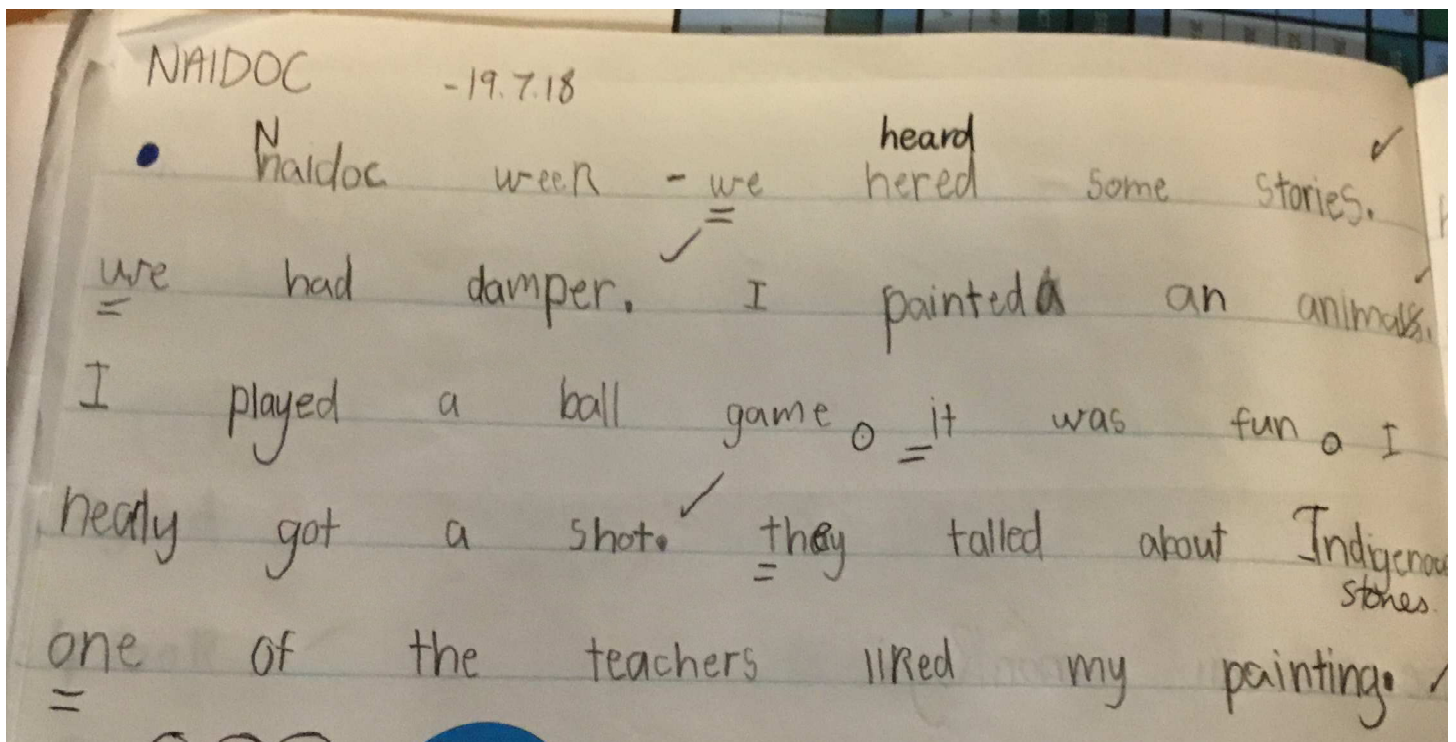 NAIDOC -19.7.18
heard
Naidoc week - we hered some stories.
we had damper. I painted an animals.
I played a ball game. it was fun. I
nearly got a shot. they talled about Indigenou
stories.
one of the teachers liked my painting.